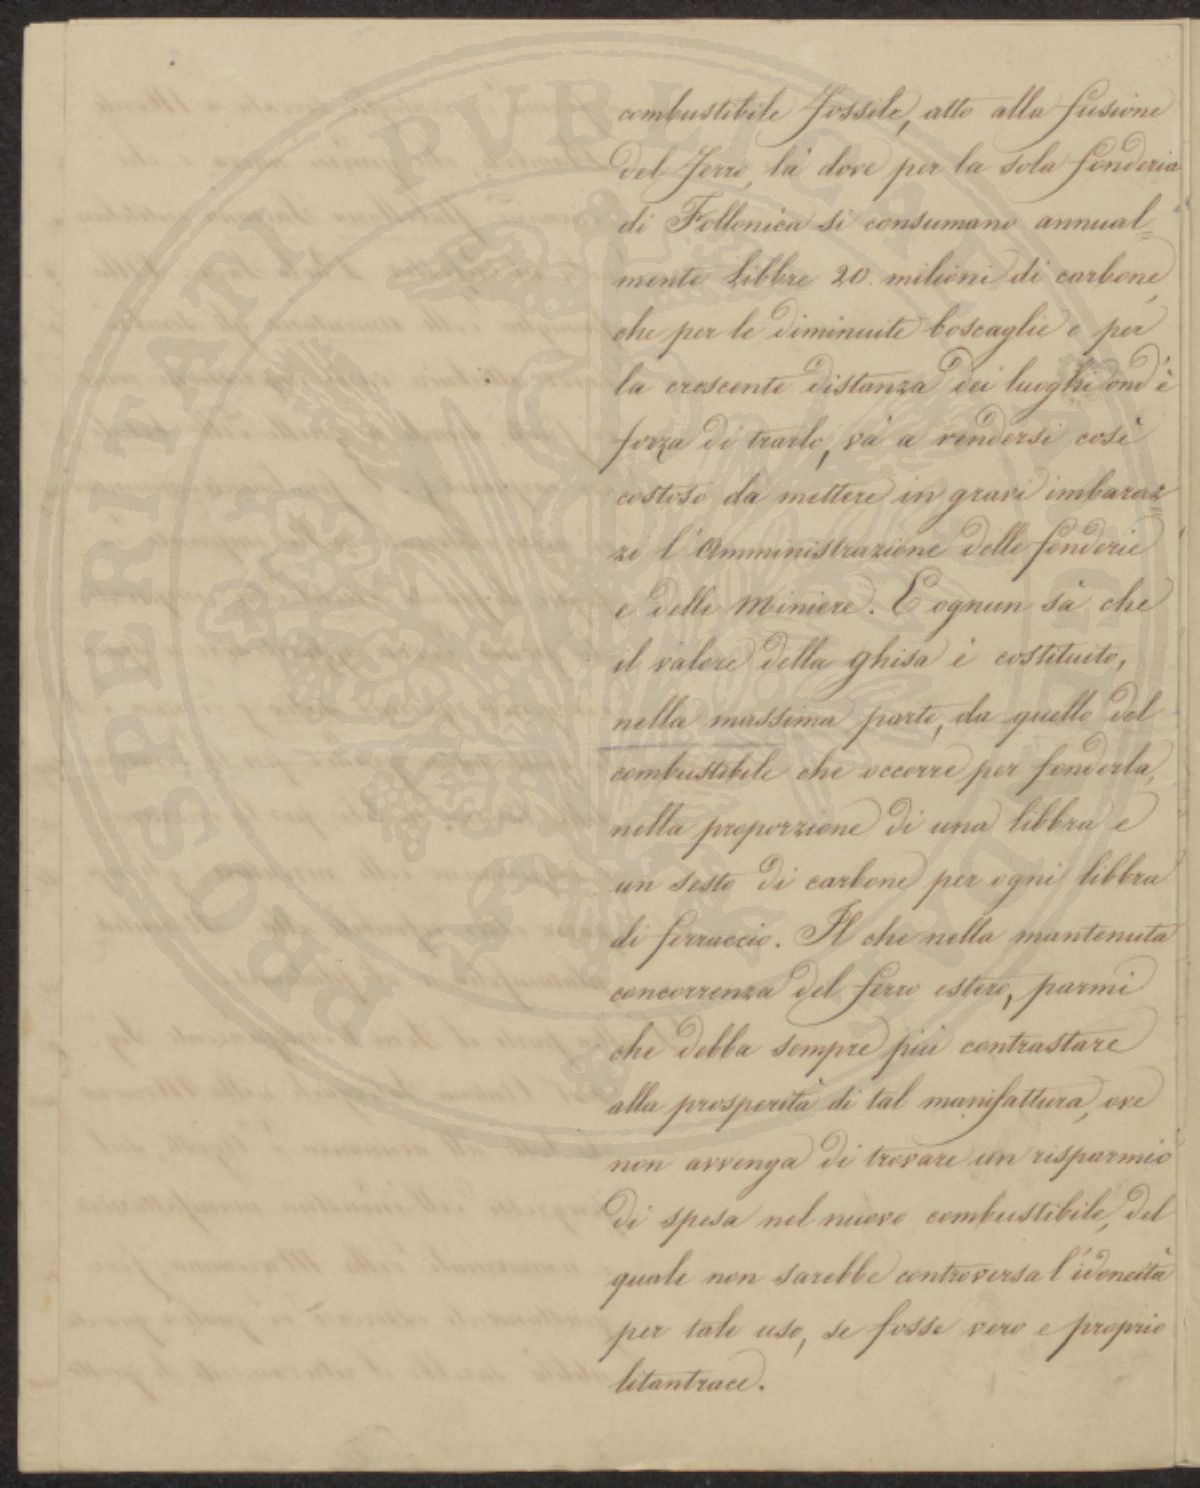 combustibile fossile, atto alla fusione
del ferro, là dove per la sola fonderia
di Follonica si consumano annual=
mente libbre 20. milioni di carbone,
che per le diminuite boscaglie e per
la crescente distanza dei luoghi ond'è
forza di trarlo, và a rendersi così
costoso da mettere in gravi imbaraz=
zi l'Amministrazione delle fonderie
e delle Miniere. E ognun sà che
il valore della ghisa è costituito,
nella massima parte, da quello del
combustibile che occorre per fonderla,
nella proporzione di una libbra e
un sesto di carbone per ogni libbra
di ferraccio. Il che nella mantenuta
concorrenza del ferro estero, parmi
che debba sempre più contrastare
alla prosperità di tal manifattura, ove
non avvenga di trovare un risparmio
di spesa nel nuovo combustibile, del
quale non sarebbe controversa l'idoneità
per tale uso, se fosse vero e proprio
litantrace.
PROSPERITATI PUBLICAE